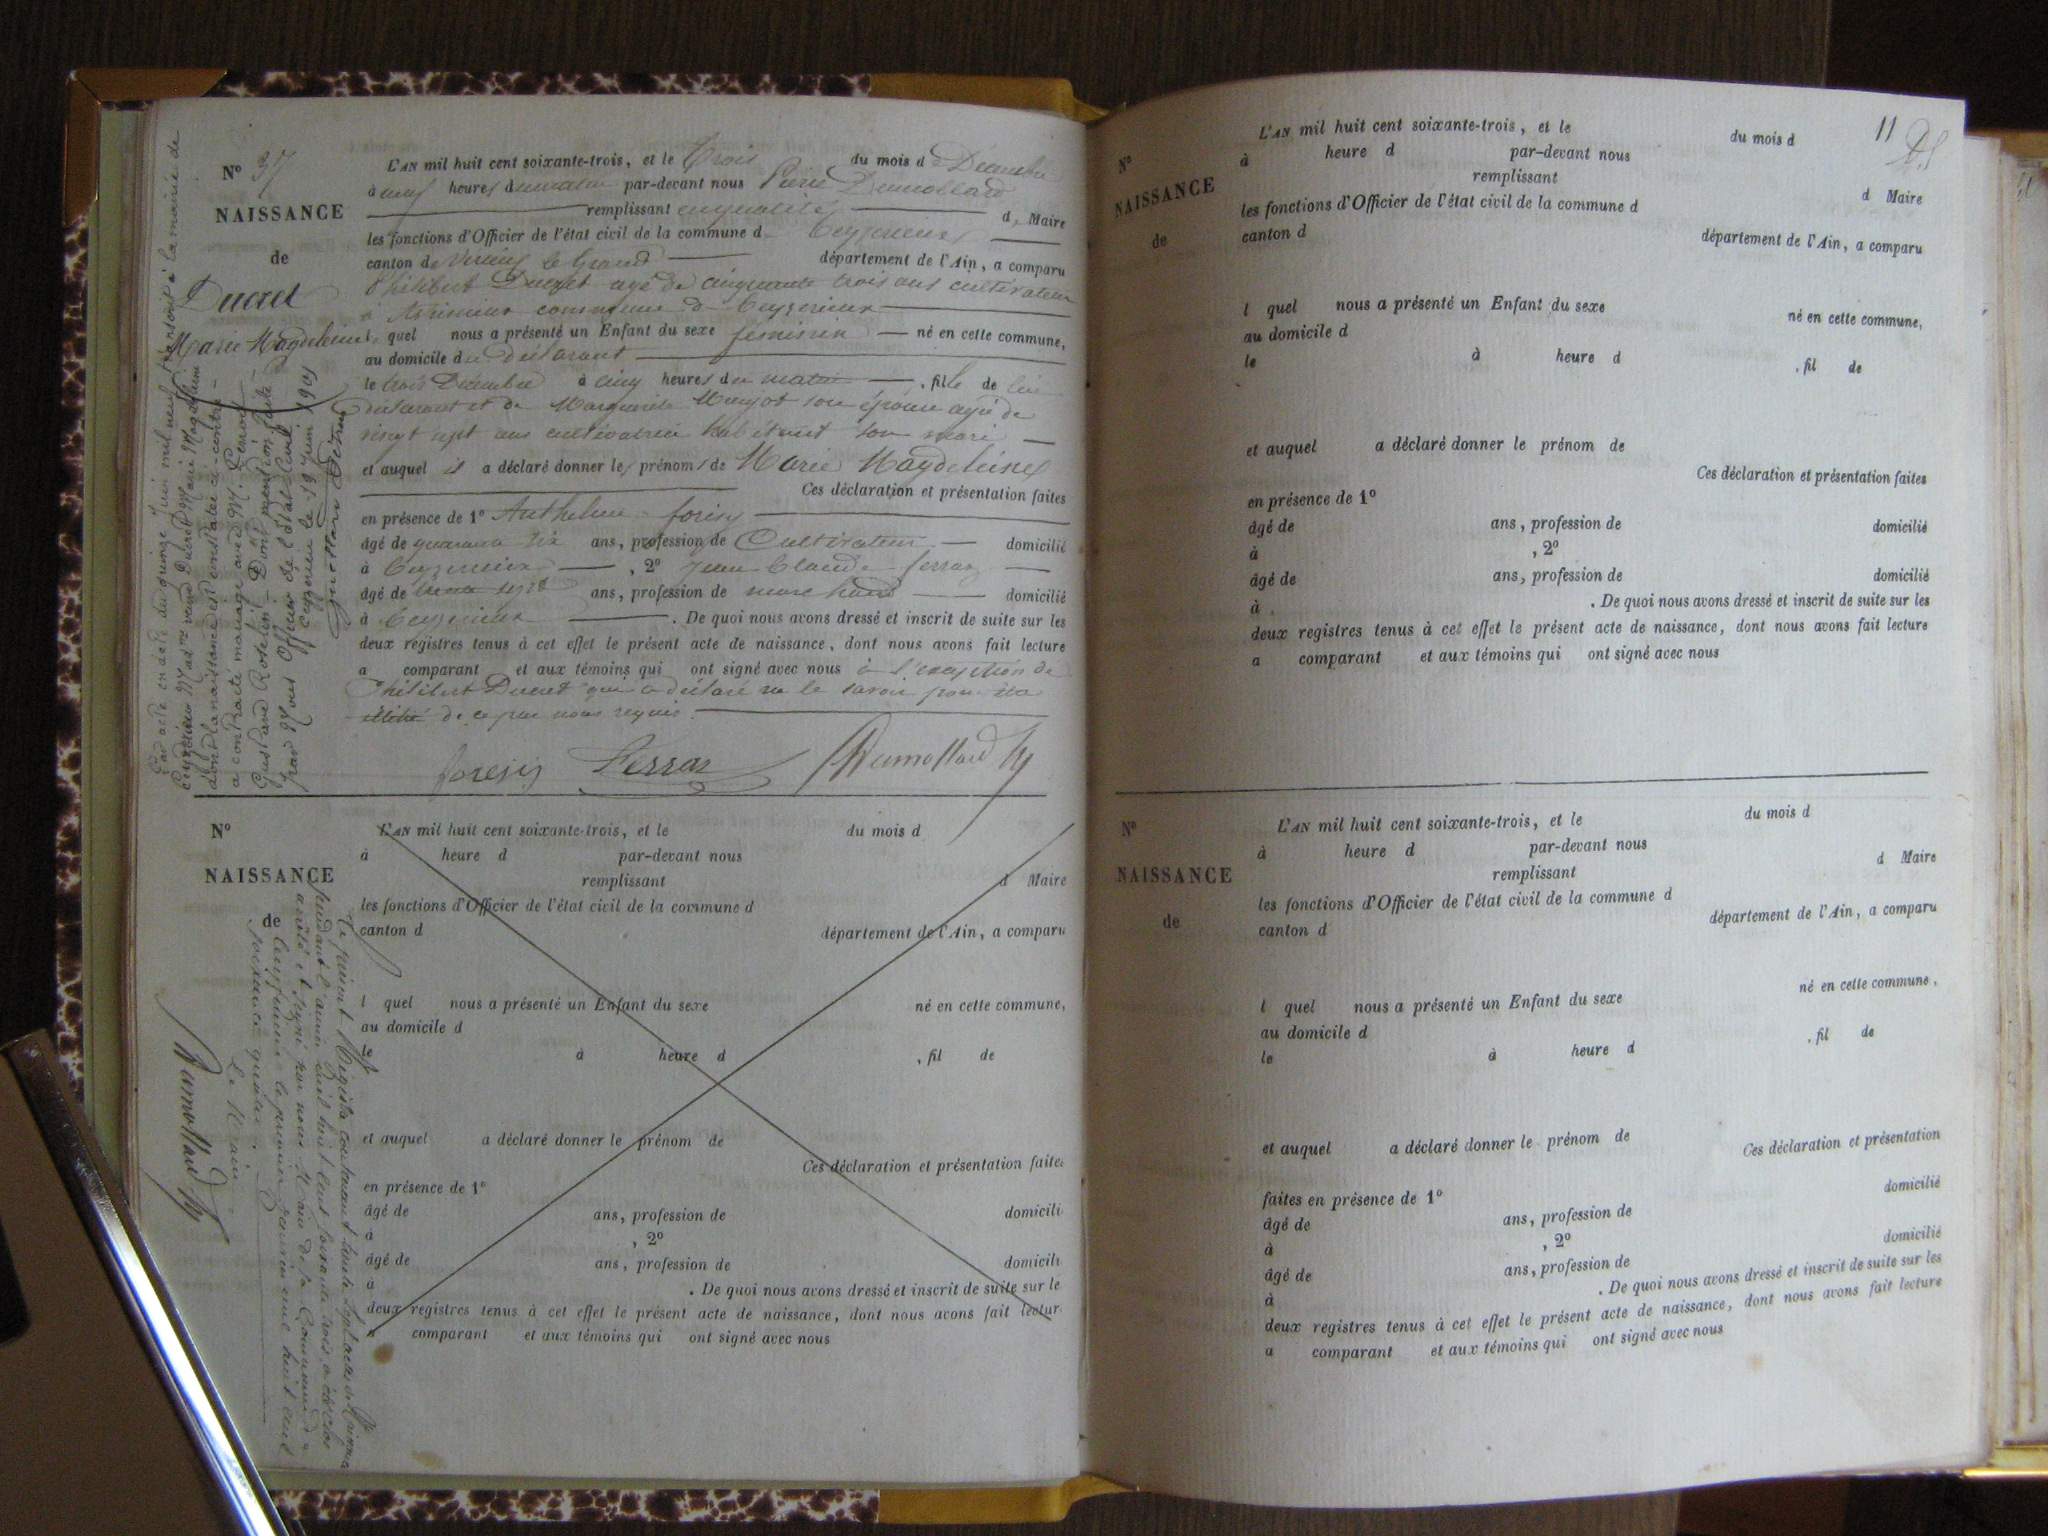 N° 37
NAISSANCE
de
Ducret
Marie Magdeleine
L'AN mil huit cent soixante-trois, et le trois du mois de Décembre
à neuf heures du matin par-devant nous Pierre Dumollard
remplissant en qualité de Maire
les fonctions d'Officier de l'état civil de la commune de Ceyzerieux
canton de Virieux le Grand département de l'Ain, a comparu
Philibert Ducret agé de cinquante trois ans cultivateur
à commune de Ceyzerieux
lequel nous a présenté un Enfant du sexe féminin né en cette commune,
au domicile du déclarant
le trois Décembre à cinq heures du matin, fille de lui
déclarant et de Marguerite son épouse agée de
vingt sept ans cultivatrice habitant son mari
et auquel il a déclaré donner les prénoms de Marie Magdeleine
Ces déclaration et présentation faites
en présence de 1° Anthelme forisy
âgé de quarante six ans, profession de Cultivateur domicilié
à Ceyzerieux, 2° Jean Claude ferraz
âgé de trente sept ans, profession de marchand domicilié
à Ceyzerieux. De quoi nous avons dressé et inscrit de suite sur les
deux registres tenus à cet effet le présent acte de naissance, dont nous avons fait lecture
a comparant et aux témoins qui ont signé avec nous à l'exception de
Philibert Ducret qui a déclaré ne le savoir pour
de ce par nous requis.
Ferraz Dumollard
Par acte en date du quinze Juin mil neuf à la mairie de
Ceyzerieu Mad^me veuve Ducret Marie Magdeleine
dont la naissance est constatée ci-contre
a contracté mariage avec M.
Gustave Dont mention faite
par Nous Officier de l'état Civil
Ceyzerieu le 19 Juin 1901
N°
NAISSANCE
de
L'AN mil huit cent soixante-trois, et le du mois d
à heure d par-devant nous
remplissant d Maire
les fonctions d'Officier de l'état civil de la commune d
canton d département de l'Ain, a comparu
l quel nous a présenté un Enfant du sexe né en cette commune,
au domicile d
le à heure d , fil de
et auquel a déclaré donner le prénom de
Ces déclaration et présentation faites
en présence de 1°
âgé de ans, profession de domicilié
à , 2°
âgé de ans, profession de domicilié
à . De quoi nous avons dressé et inscrit de suite sur le
deux registres tenus à cet effet le présent acte de naissance, dont nous avons fait lectur
a comparant et aux témoins qui ont signé avec nous
Le présent Registre contenant trente sept actes de Naissance
pendant l'année mil huit cent soixante trois, a été clos
arrêté et signé par nous Maire de la Commune de
Ceyzerieux le premier Janvier mil huit cent
soixante quatre.
Le Maire
Dumollard
11
N°
NAISSANCE
de
L'AN mil huit cent soixante-trois, et le du mois d
à heure d par-devant nous
remplissant d Maire
les fonctions d'Officier de l'état civil de la commune d
canton d département de l'Ain, a comparu
l quel nous a présenté un Enfant du sexe né en cette commune,
au domicile d
le à heure d , fil de
et auquel a déclaré donner le prénom de
Ces déclaration et présentation faites
en présence de 1°
âgé de ans, profession de domicilié
à , 2°
âgé de ans, profession de domicilié
à . De quoi nous avons dressé et inscrit de suite sur les
deux registres tenus à cet effet le présent acte de naissance, dont nous avons fait lecture
a comparant et aux témoins qui ont signé avec nous
N°
NAISSANCE
de
L'AN mil huit cent soixante-trois, et le du mois d
à heure d par-devant nous
remplissant d Maire
les fonctions d'Officier de l'état civil de la commune d
canton d département de l'Ain, a comparu
l quel nous a présenté un Enfant du sexe né en cette commune,
au domicile d
le à heure d , fil de
et auquel a déclaré donner le prénom de
Ces déclaration et présentation
faites en présence de 1° domicilié
âgé de ans, profession de
à , 2° domicilié
âgé de ans, profession de
à . De quoi nous avons dressé et inscrit de suite sur les
deux registres tenus à cet effet le présent acte de naissance, dont nous avons fait lecture
a comparant et aux témoins qui ont signé avec nous